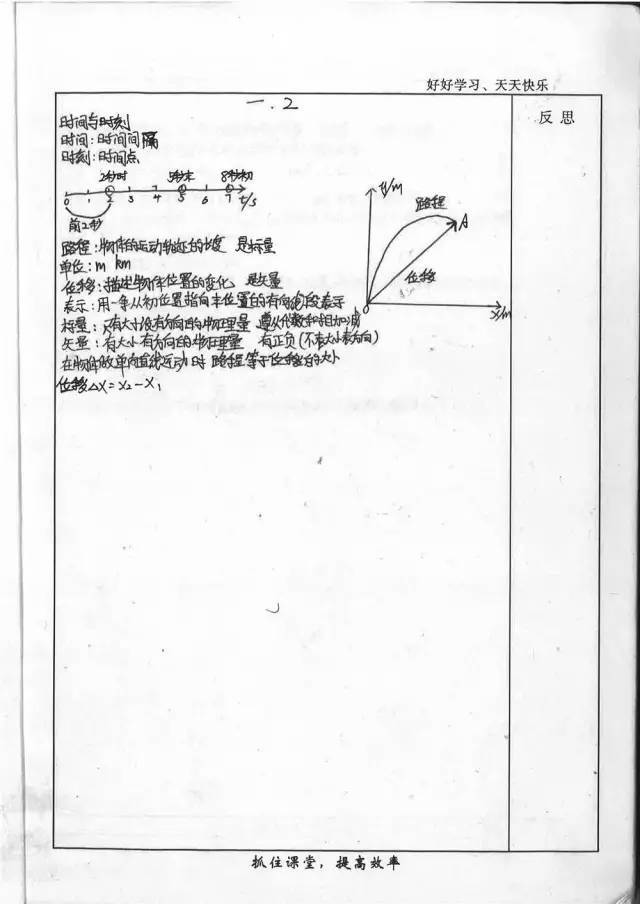 好好学习、天天快乐
一.2
反思
时间与时刻
时间:时间间隔
时刻:时间点
2秒时 5秒末 8秒初
0 1 2 3 4 5 6 7 t/s
前2秒
y/m
路程
A
位移
0
x/m
路程:物体的运动轨迹的长度 是标量
单位:m km
位移:描述物体位置的变化 是矢量
表示:用一条从初位置指向末位置的有向线段表示
标量:只有大小没有方向的物理量 遵从代数和相加减
矢量:有大小有方向的物理量 有正负(不表大小表方向)
在物体做单向直线运动时 路程等于位移的大小
位移△x=x₂-x₁
抓住课堂,提高效率